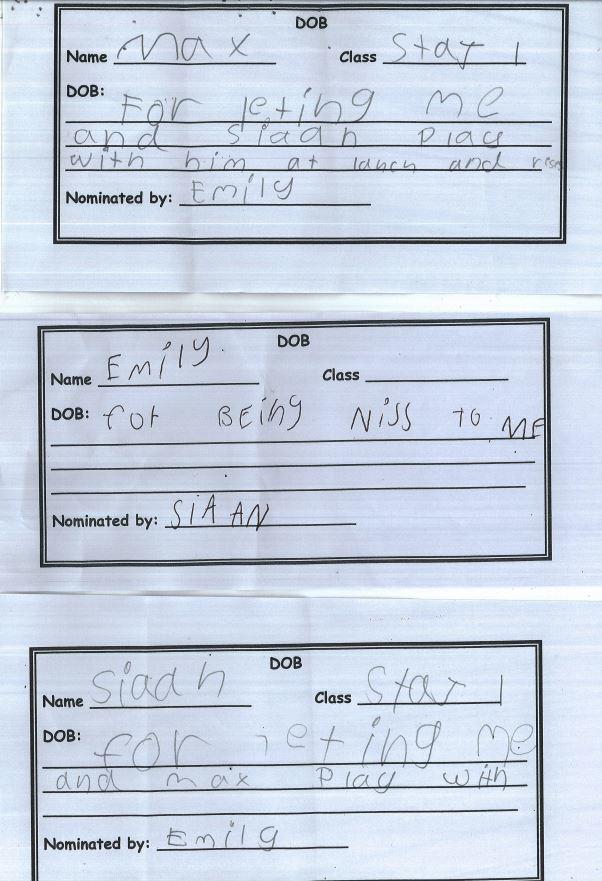 DOB
Name Max Class Star 1
DOB: For leting me
and Siaan play
with him at lanch and
Nominated by: Emily
DOB
Name Emily. Class
DOB: for BEiNg NiSS TO ME
Nominated by: SIAAN
DOB
Name Siaan Class Star 1
DOB: for leting me
and max play with
Nominated by: Emily